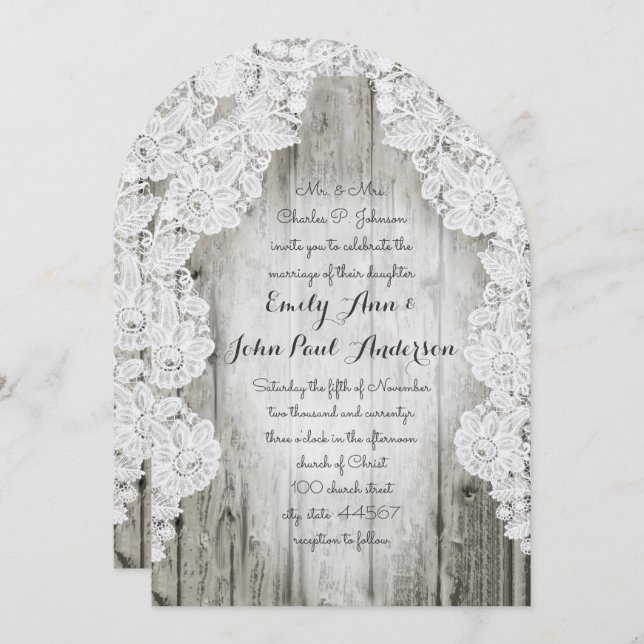 Mr. & Mrs.
Charles P. Johnson
invite you to celebrate the
marriage of their daughter
Emily Ann &
John Paul Anderson
Saturday the fifth of November
two thousand and currentyr
three o'clock in the afternoon
church of Christ
100 church street
city, state 44567
reception to follow